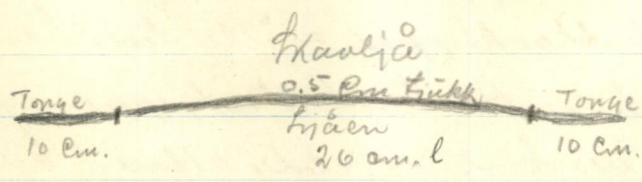 Skavljå
0.5 Cm tjukk
Tonge Tonge
Ljåen
10 Cm. 26 cm. l 10 Cm.